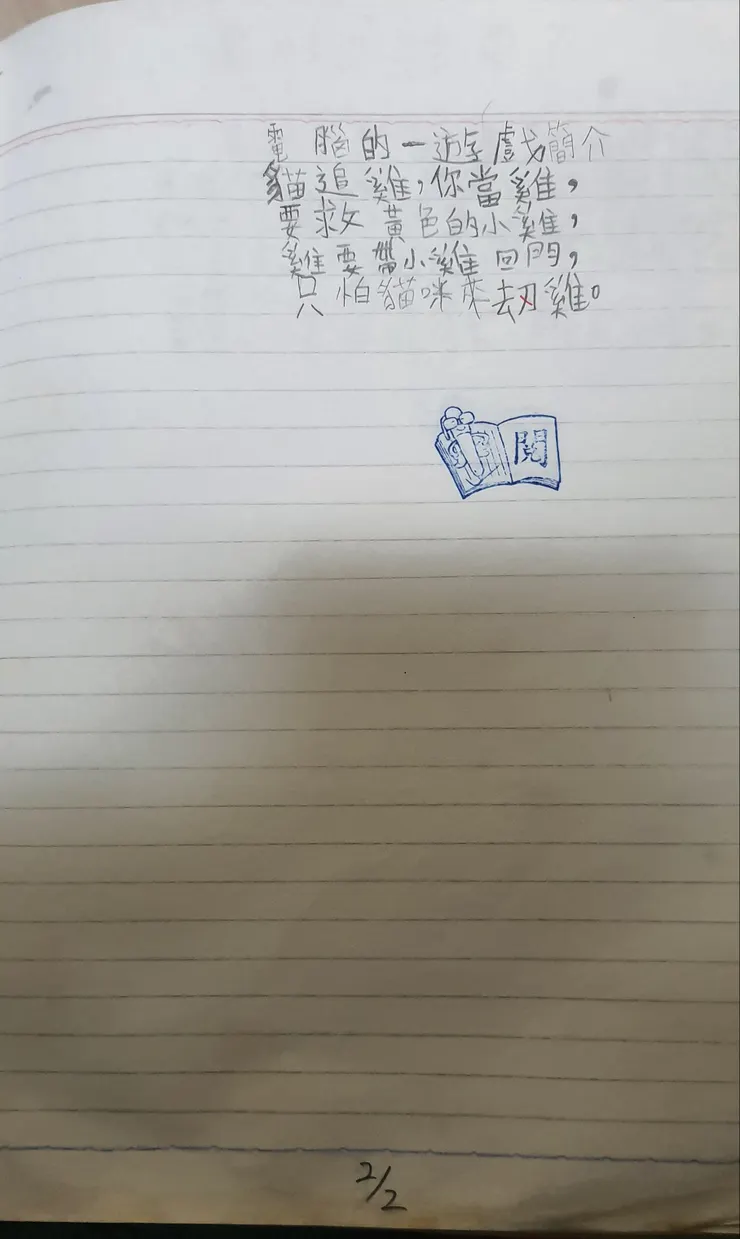 電腦的一遊戲簡介
貓追雞,你當雞,
要救黃色的小雞,
雞要帶小雞回門,
只怕貓咪來劫雞。
閱
2/2